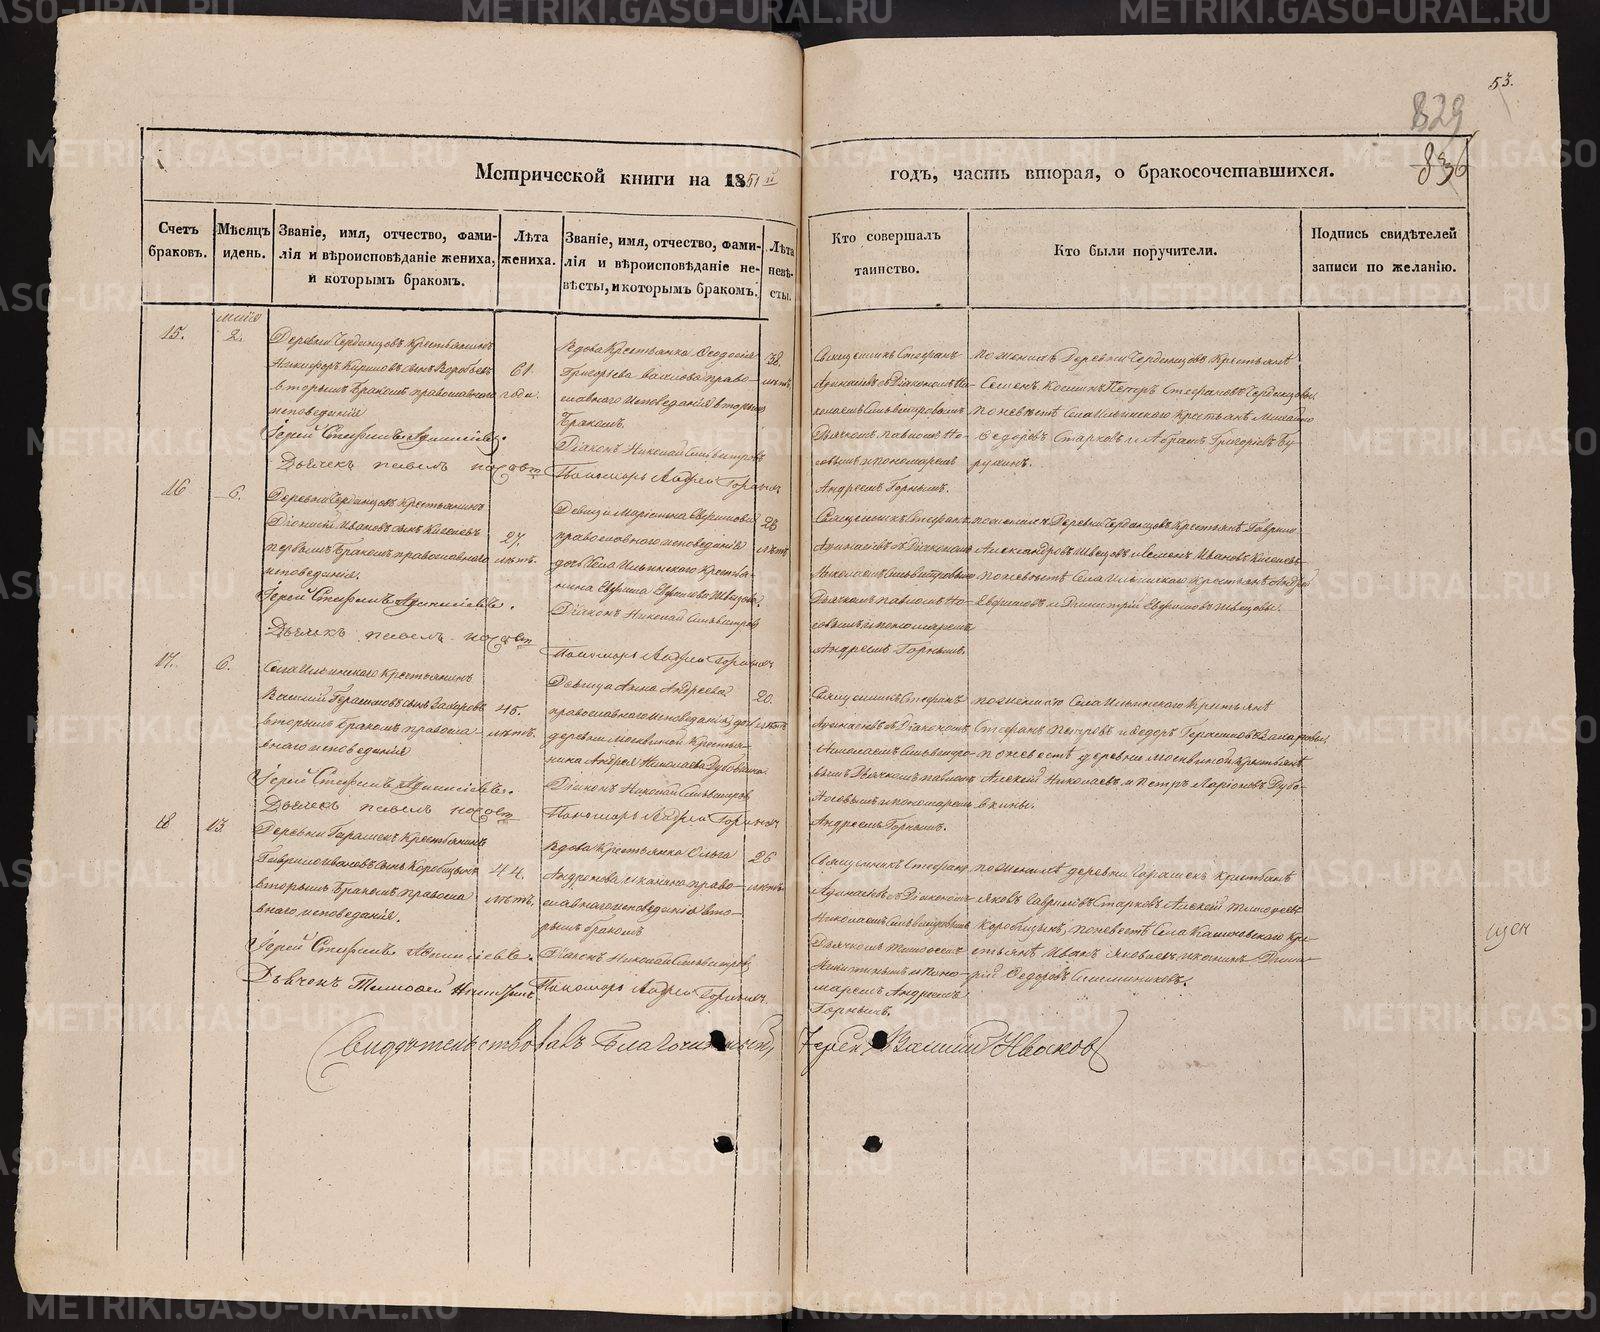 53.
829
836
Метрической книги на 1851й
годъ, часть вторая, о бракосочетавшихся.
Счетъ браковъ.
Мѣсяцъ и день.
Званіе, имя, отчество, фами-
лія и вѣроисповѣданіе жениха,
и которымъ бракомъ.
Лѣта
жениха.
Званіе, имя, отчество, фами-
лія и вѣроисповѣданіе не-
вѣсты, и которымъ бракомъ.
Лѣта
невѣ-
сты.
Кто совершалъ
таинство.
Кто были поручители.
Подпись свидѣтелей
записи по желанію.
15.
Майя
2.
Деревни Черданцовъ Крестьянинъ
Никифоръ Кириловъ сынъ Воробьевъ
вторымъ бракомъ православнаго
исповеданія
Іерей Стефанъ Афанасіевъ.
Дьячекъ Павелъ
61.
годъ.
Вдова Крестьянка Феодосія
Григорьева право-
славнаго исповеданія вторымъ
бракомъ.
Діаконъ Николай Сильвестровъ
Пономарь Андрей Горныхъ
38.
лѣтъ
Священникъ Стефанъ
Афанасіевъ съ Діакономъ Ни-
колаемъ Сильвестровымъ
Дьячкомъ Павломъ Но-
совымъ и пономаремъ
Андреемъ Горныхъ.
по женихѣ Деревни Черданцовъ Крестьяне
Семенъ Козминъ Петръ Стефановъ Черданцовы,
по невѣстѣ Села Ильинского Крестьяне Михайло
Федоровъ Старковъ и Абрамъ Григорьевъ Бу-
рухинъ.
16
6.
Деревни Черданцовъ Крестьянинъ
Діонисій Ивановъ сынъ Киселевъ
первымъ бракомъ православнаго
исповеданія.
Іерей Стефанъ Афанасіевъ.
Дьячекъ Павелъ
27.
лѣтъ.
Девица Маріамна Евфимова
православного исповеданія
дочь Села Ильинского Крестья-
нина Евфима Евфимова Швецова.
Діаконъ Николай Сильвестровъ
Пономарь Андрей Горныхъ
26
лѣтъ
Священникъ Стефанъ
Афанасіевъ съ Діакономъ
Николаемъ Сильвестровымъ
Дьячкомъ Павломъ Но-
совымъ и пономаремъ
Андреемъ Горныхъ.
по женихѣ Деревни Черданцовъ Крестьяне Гаврило
Александровъ Швецовъ и Семенъ Ивановъ Киселевъ
по невѣстѣ Села Ильинского Крестьяне Андрей
Евфимовъ и Димитрій Евфимовъ Швецовы.
17.
6.
Села Ильинского Крестьянинъ
Василій Герасимовъ сынъ Захаровъ
вторымъ бракомъ правосла-
внаго исповеданія
Іерей Стефанъ Афанасіевъ.
Дьячекъ Павелъ
45.
лѣтъ.
Девица Анна Андреева
православного исповеданія дочь
деревни Москвиной Крестья-
нина Андрея Николаева Дубовкина
Діаконъ Николай Сильвестровъ
Пономарь Андрей Горныхъ
20.
лѣтъ
Священникъ Стефанъ
Афанасіевъ съ Діакономъ
Николаемъ Сильвестро-
вымъ Дьячкомъ Павломъ
Носовымъ и пономаремъ
Андреемъ Горныхъ.
по женихѣ Села Ильинского Крестьяне
Стефанъ Петровъ и Федоръ Герасимовъ Захаровы,
по невестѣ деревни Москвиной Крестьяне
Алексей Николаевъ и Петръ Ларіоновъ Дубо-
вкины.
18
13.
Деревни Гарашекъ Крестьянинъ
Гаврило Ивановъ сынъ Коробицынъ
вторымъ бракомъ правосла
внаго исповеданія.
Іерей Стефанъ Афанасіевъ.
Дьячекъ Тимофей Никитинъ
44.
лѣтъ.
Вдова Крестьянка Ольга
Андронова право-
славнаго исповеданія вто-
рымъ бракомъ
Діаконъ Николай Сильвестровъ
Пономарь Андрей Горныхъ.
26
лѣтъ
Священникъ Стефанъ
Афанасіевъ съ Діакономъ
Николаемъ Сильвестровымъ
Дьячкомъ Тимофеемъ
Никитинымъ и Поно-
маремъ Андреемъ
Горныхъ.
по женихѣ деревни Гарашекъ Крестьяне
Яковъ Гавриловъ Старковъ Алексей Тимофеевъ
Коробицынъ, по невестѣ Села Кашиновскаго Кре-
стьяне Иванъ Яковлевъ Дими-
трій Федоровъ
Свидѣтельствовалъ Благочинный,
Іерей Василій Ивановъ